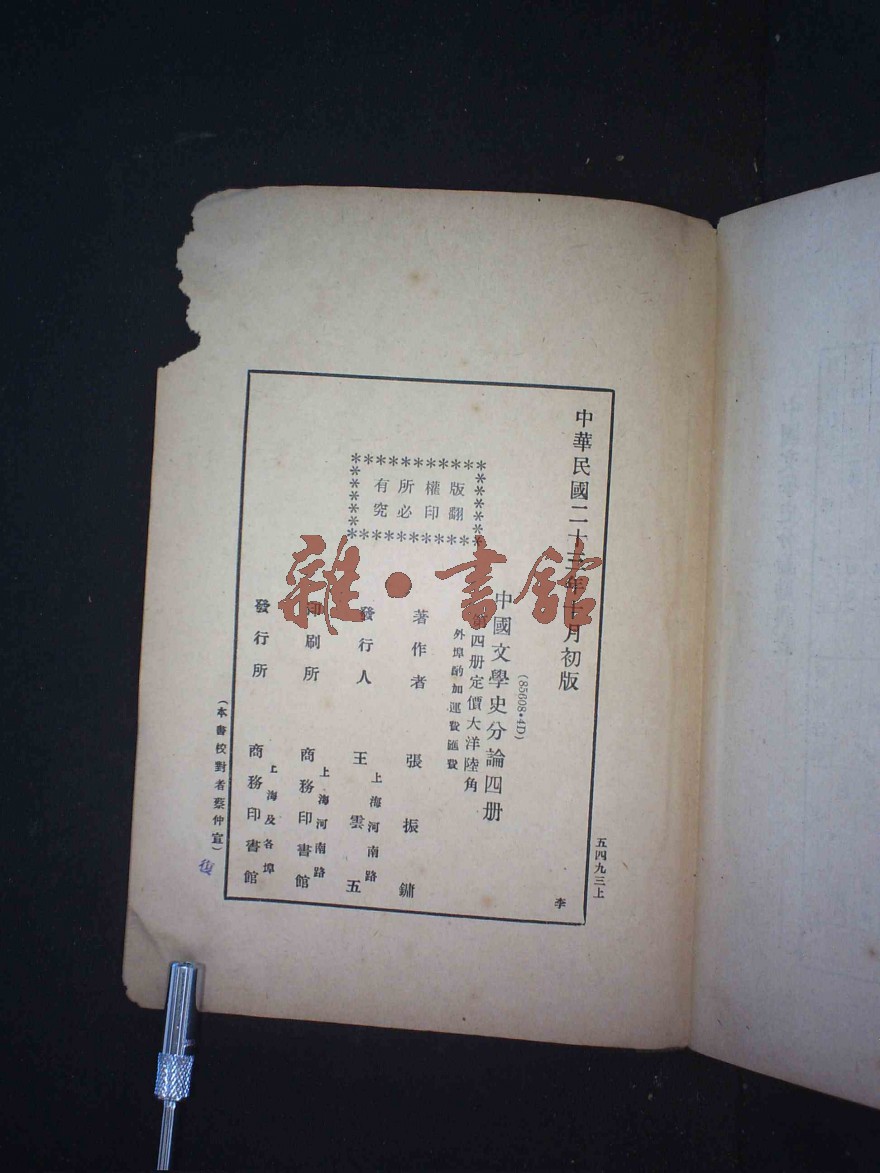 中華民國二十三年十月初版
五四九三上
李
(85608·4D)
中國文學史分論四册
第四册定價大洋陸角
外埠酌加運費匯費
版權所有
翻印必究
著作者 張振鏞
上海河南路
發行人 王雲五
上海河南路
印刷所 商務印書館
上海及各埠
發行所 商務印書館
(本書校對者蔡仲宣)
雜·書館